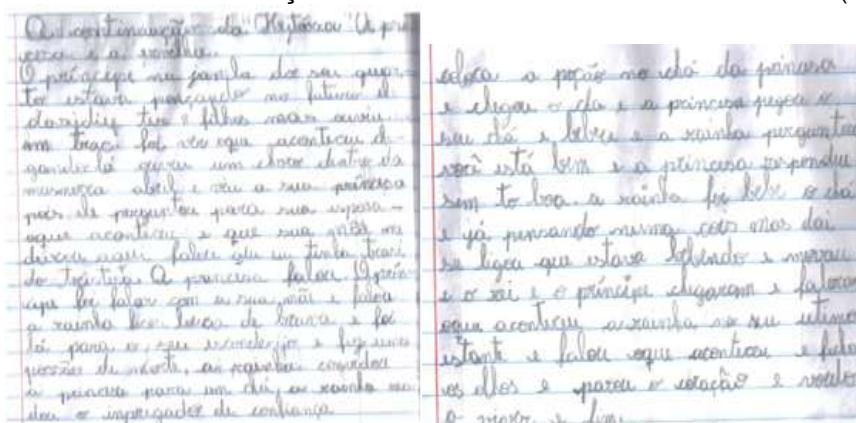 A continuação da "Históriaa "A prin
cesa e a ervilha.
O príncipe na janela do seu quar-
to estava pençando no futuro e
ter 3 filhos mais ouviu
um foi ver oque aconticeu
lá ouviu um choro dentro da
abril e viu a sua princesa
pois ele perguntou para sua esposa -
oque aconticeu e que sua mãe
falou que eu tinha
do A princesa falou. O prín-
cipe foi falar com a sua mãe e falou
a rainha ficou de brava e foi
lá para o seu e fez uma
de morte, a rainha convidou
a princesa para um chá, a rainha man
dou o inpregador de confiança
coloca a poção no chá da princesa
e chegou o cha e a princesa pegou o
seu chá e bebeu e a rainha perguntou
você está bem e a princesa respondeu
sim to boa. a rainha foi bebe o chá
e já pensando numa cois mas dai
se ligou que estava bebendo e morreu
e o rei e o príncipe chegaram e falaram
oque aconticeu a rainha no seu utimo
istante e falou oque aconticeu e
os olhos e parou o coração e
e fim.